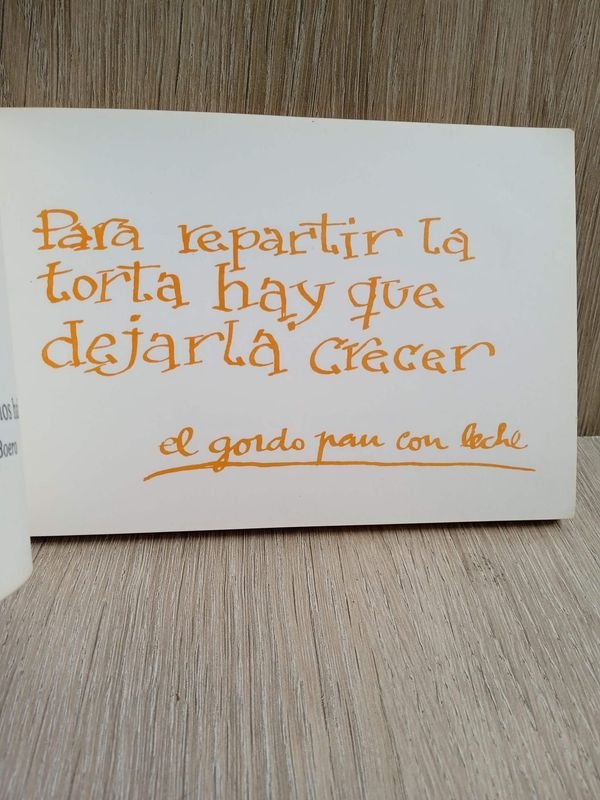 Para repartir la
torta hay que
dejarla crecer
el gordo pan con leche
Boero